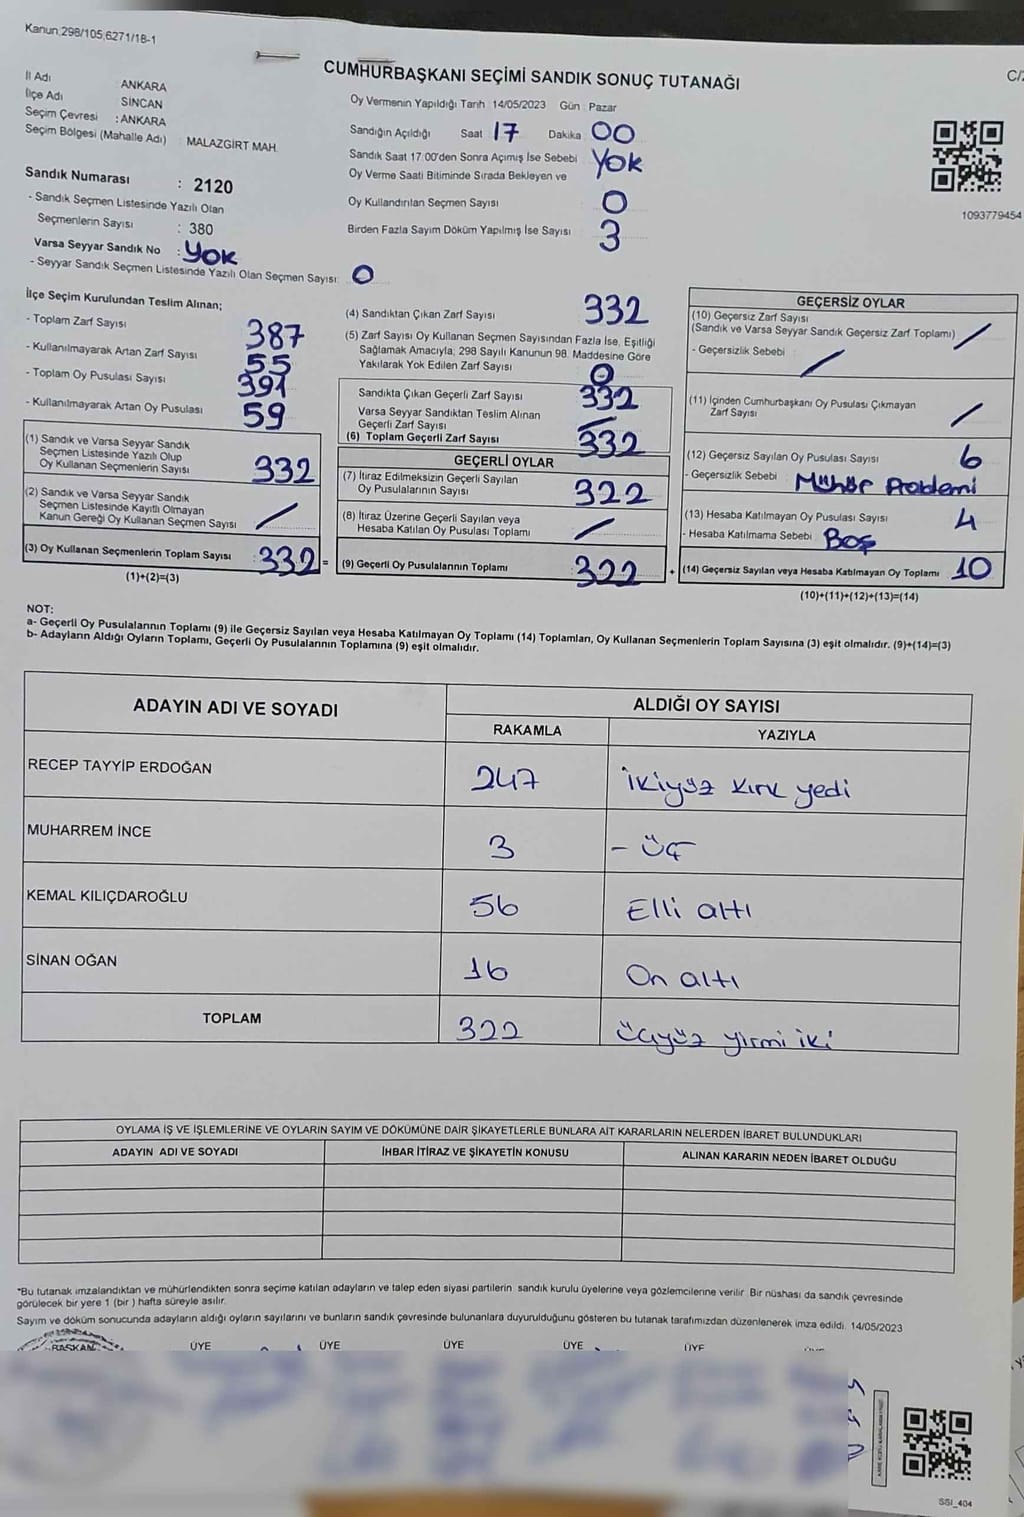 Kanun;298/105;6271/18-1
CUMHURBAŞKANI SEÇİMİ SANDIK SONUÇ TUTANAĞI
İl Adı : ANKARA
İlçe Adı : SİNCAN
Seçim Çevresi : ANKARA
Seçim Bölgesi (Mahalle Adı) : MALAZGİRT MAH.
Sandık Numarası : 2120
- Sandık Seçmen Listesinde Yazılı Olan
Seçmenlerin Sayısı : 380
Varsa Seyyar Sandık No : Yok
- Seyyar Sandık Seçmen Listesinde Yazılı Olan Seçmen Sayısı: 0
Oy Vermenin Yapıldığı Tarih 14/05/2023 Gün : Pazar
Sandığın Açıldığı Saat 17 Dakika 00
Sandık Saat 17:00'den Sonra Açımış İse Sebebi Yok
Oy Verme Saati Bitiminde Sırada Bekleyen ve
Oy Kullandırılan Seçmen Sayısı 0
Birden Fazla Sayım Döküm Yapılmış İse Sayısı 3
1093779454
İlçe Seçim Kurulundan Teslim Alınan;
- Toplam Zarf Sayısı 387
- Kullanılmayarak Artan Zarf Sayısı 55
- Toplam Oy Pusulası Sayısı 391
- Kullanılmayarak Artan Oy Pusulası 59
(1) Sandık ve Varsa Seyyar Sandık
Seçmen Listesinde Yazılı Olup
Oy Kullanan Seçmenlerin Sayısı 332
(2) Sandık ve Varsa Seyyar Sandık
Seçmen Listesinde Kayıtlı Olmayan
Kanun Gereği Oy Kullanan Seçmen Sayısı /
(3) Oy Kullanan Seçmenlerin Toplam Sayısı : 332 =
(1)+(2)=(3)
(4) Sandıktan Çıkan Zarf Sayısı 332
(5) Zarf Sayısı Oy Kullanan Seçmen Sayısından Fazla İse, Eşitliği
Sağlamak Amacıyla, 298 Sayılı Kanunun 98. Maddesine Göre
Yakılarak Yok Edilen Zarf Sayısı 0
Sandıkta Çıkan Geçerli Zarf Sayısı 332
Varsa Seyyar Sandıktan Teslim Alınan
Geçerli Zarf Sayısı
(6) Toplam Geçerli Zarf Sayısı 332
GEÇERLİ OYLAR
(7) İtiraz Edilmeksizin Geçerli Sayılan
Oy Pusulalarının Sayısı 322
(8) İtiraz Üzerine Geçerli Sayılan veya
Hesaba Katılan Oy Pusulası Toplamı /
(9) Geçerli Oy Pusulalarının Toplamı 322 +
GEÇERSİZ OYLAR
(10) Geçersiz Zarf Sayısı
(Sandık ve Varsa Seyyar Sandık Geçersiz Zarf Toplamı) /
- Geçersizlik Sebebi /
(11) İçinden Cumhurbaşkanı Oy Pusulası Çıkmayan
Zarf Sayısı /
(12) Geçersiz Sayılan Oy Pusulası Sayısı 6
- Geçersizlik Sebebi : Mühür Problemi
(13) Hesaba Katılmayan Oy Pusulası Sayısı 4
- Hesaba Katılmama Sebebi : Boş
(14) Geçersiz Sayılan veya Hesaba Katılmayan Oy Toplamı 10
(10)+(11)+(12)+(13)=(14)
NOT:
a- Geçerli Oy Pusulalarının Toplamı (9) ile Geçersiz Sayılan veya Hesaba Katılmayan Oy Toplamı (14) Toplamları, Oy Kullanan Seçmenlerin Toplam Sayısına (3) eşit olmalıdır. (9)+(14)=(3)
b- Adayların Aldığı Oyların Toplamı, Geçerli Oy Pusulalarının Toplamına (9) eşit olmalıdır.
ADAYIN ADI VE SOYADI ALDIĞI OY SAYISI
RAKAMLA YAZIYLA
RECEP TAYYİP ERDOĞAN 247 İkiyüz Kırk yedi
MUHARREM İNCE 3 - Üç
KEMAL KILIÇDAROĞLU 56 Elli altı
SİNAN OĞAN 16 On altı
TOPLAM 322 Üçyüz yirmi iki
OYLAMA İŞ VE İŞLEMLERİNE VE OYLARIN SAYIM VE DÖKÜMÜNE DAİR ŞİKAYETLERLE BUNLARA AİT KARARLARIN NELERDEN İBARET BULUNDUKLARI
ADAYIN ADI VE SOYADI İHBAR İTİRAZ VE ŞİKAYETİN KONUSU ALINAN KARARIN NEDEN İBARET OLDUĞU
*Bu tutanak imzalandıktan ve mühürlendikten sonra seçime katılan adayların ve talep eden siyasi partilerin sandık kurulu üyelerine veya gözlemcilerine verilir. Bir nüshası da sandık çevresinde
görülecek bir yere 1 (bir ) hafta süreyle asılır.
Sayım ve döküm sonucunda adayların aldığı oyların sayılarını ve bunların sandık çevresinde bulunanlara duyurulduğunu gösteren bu tutanak tarafımızdan düzenlenerek imza edildi. 14/05/2023
BAŞKAN ÜYE ÜYE ÜYE ÜYE ÜYE
SSİ_404